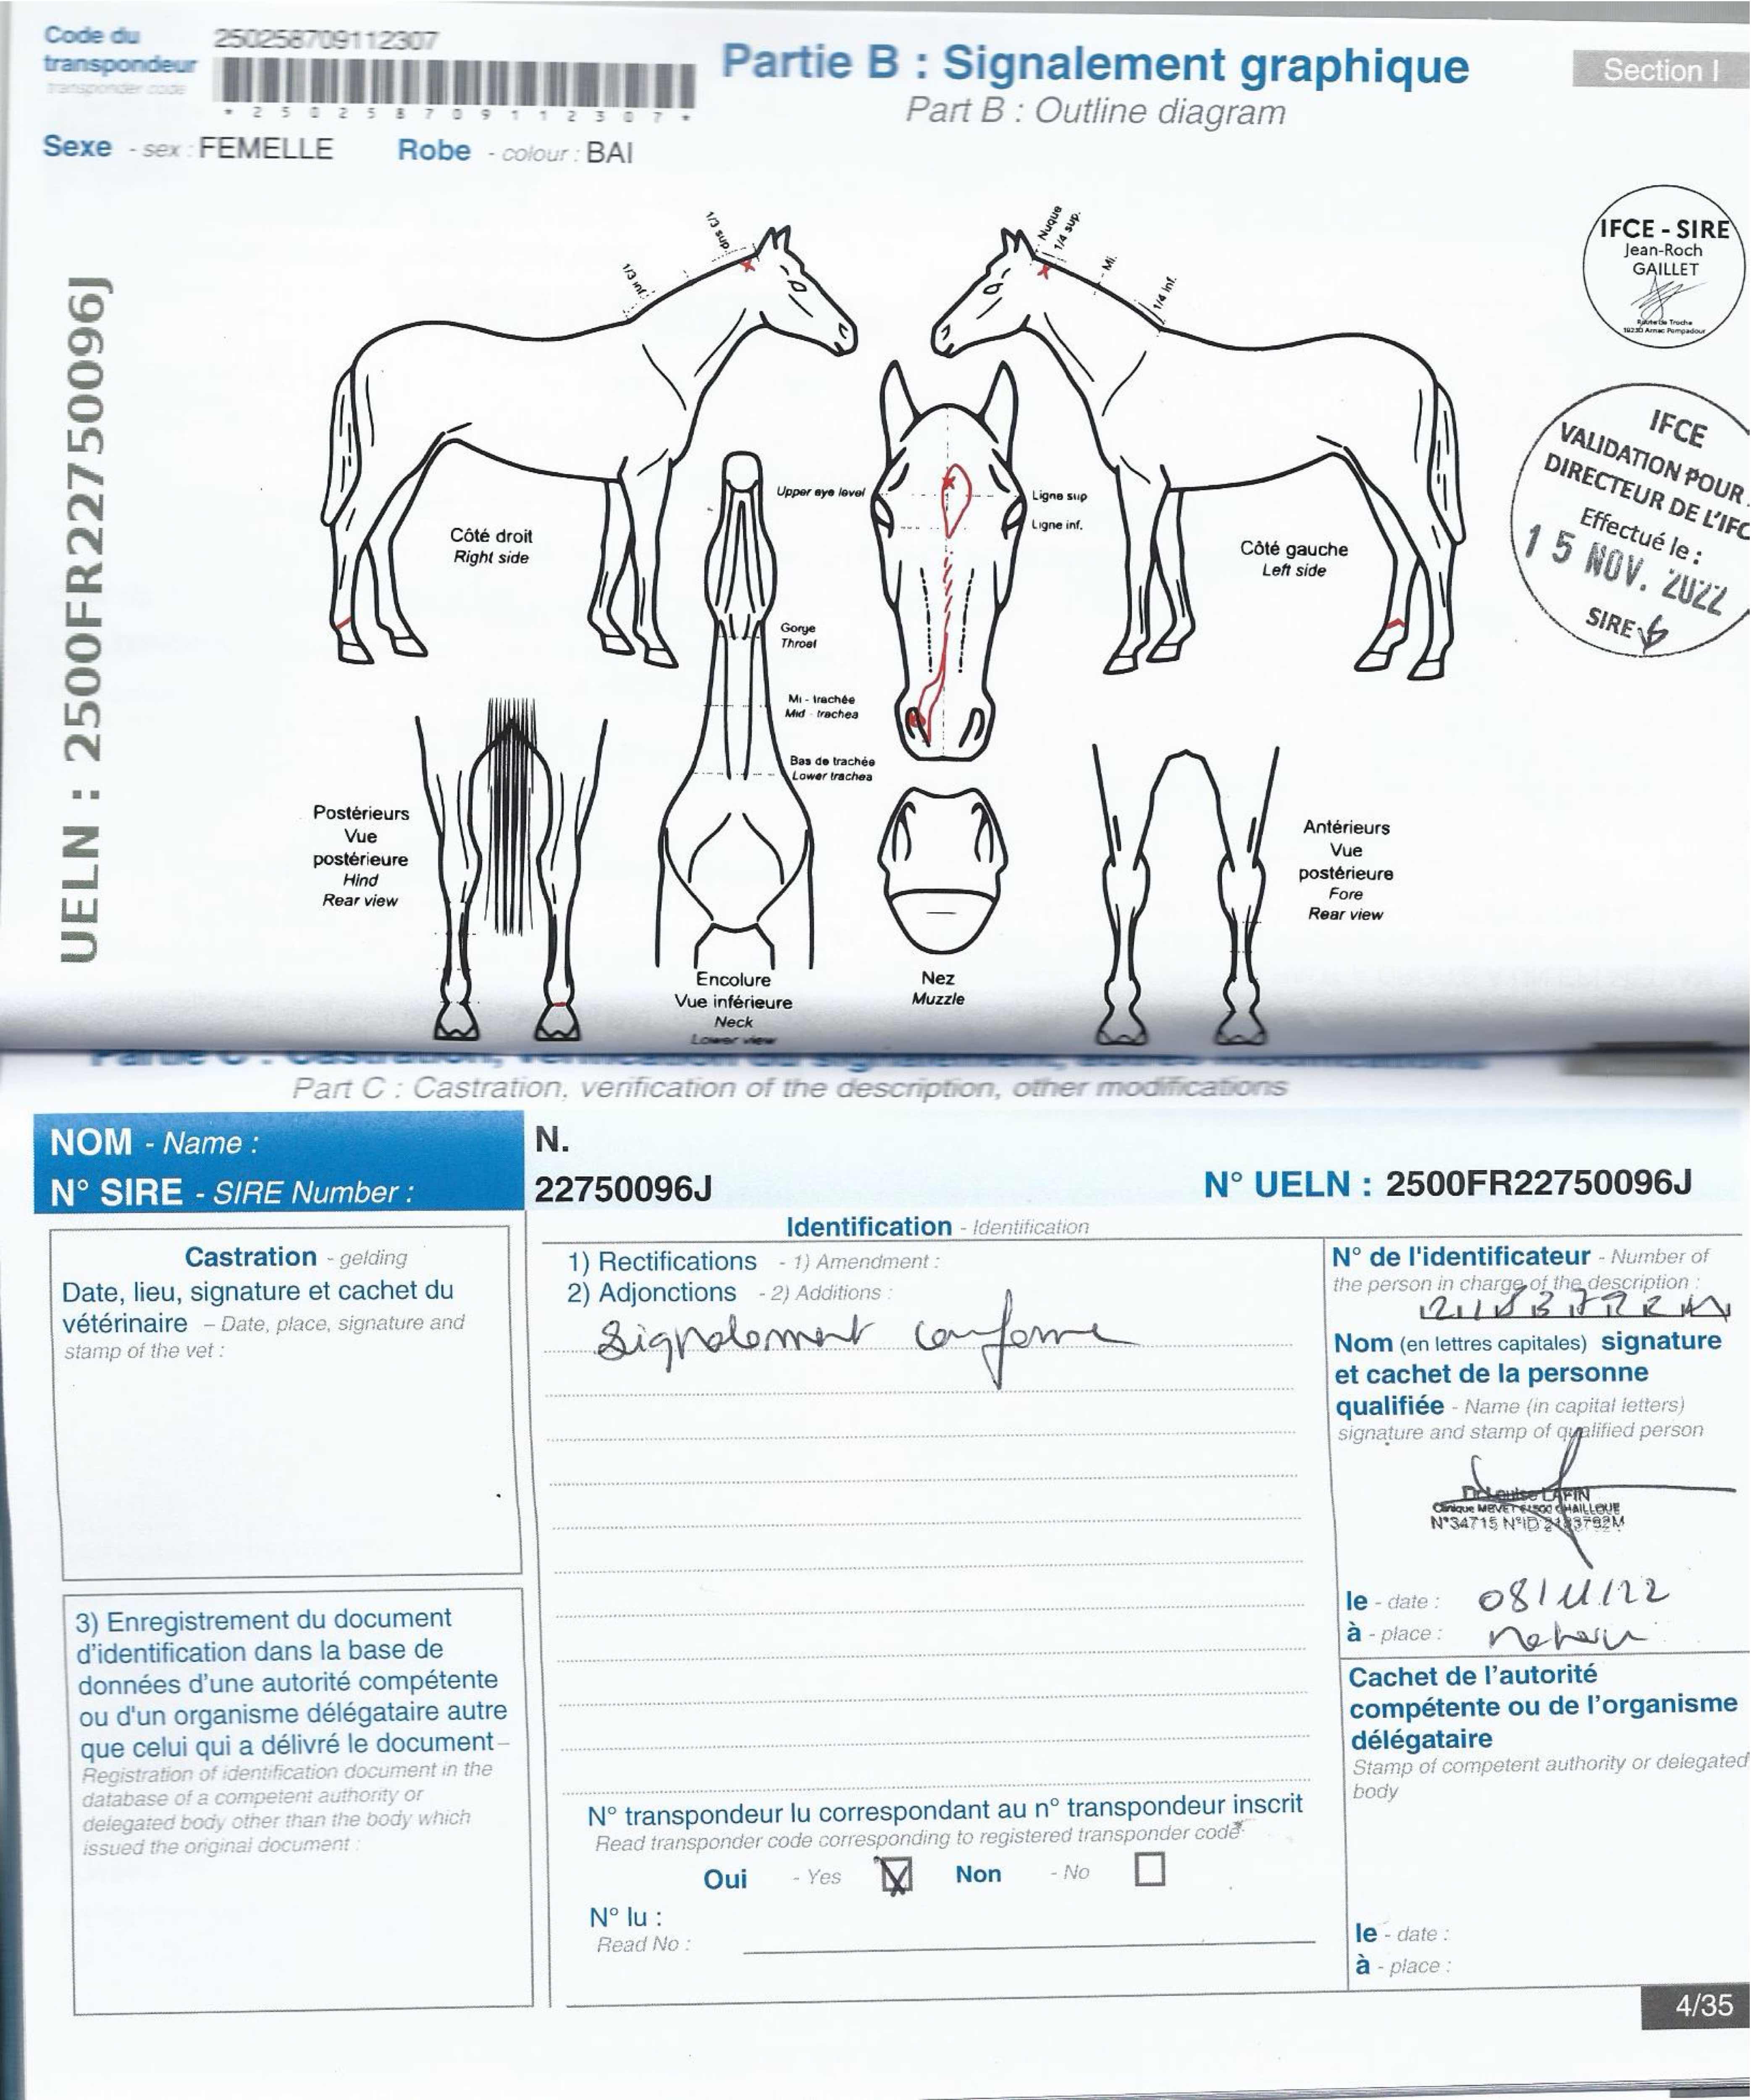 Code du
transpondeur
transponder code
250258709112307
* 2 5 0 2 5 8 7 0 9 1 1 2 3 0 7 *
Partie B : Signalement graphique
Part B : Outline diagram
Section I
Sexe - sex : FEMELLE Robe - colour : BAI
UELN : 2500FR22750096J
1/3 sup.
1/3 inf.
Nuque
1/4 sup.
Mi.
1/4 inf.
IFCE - SIRE
Jean-Roch
GAILLET
Route de Troche
19230 Arnac Pompadour
IFCE
VALIDATION POUR
DIRECTEUR DE L'IFC
Effectué le :
15 NOV. 2022
SIRE
Upper eye level
Ligne sup
Ligne inf.
Côté droit
Right side
Côté gauche
Left side
Gorge
Throat
Mi - trachée
Mid - trachea
Bas de trachée
Lower trachea
Postérieurs
Vue
postérieure
Hind
Rear view
Antérieurs
Vue
postérieure
Fore
Rear view
Encolure
Vue inférieure
Neck
Lower view
Nez
Muzzle
Partie C : Castration, vérification du signalement, autres modifications
Part C : Castration, verification of the description, other modifications
NOM - Name :
N.
N° SIRE - SIRE Number :
22750096J
N° UELN : 2500FR22750096J
Castration - gelding
Date, lieu, signature et cachet du
vétérinaire – Date, place, signature and
stamp of the vet :
Identification - Identification
1) Rectifications - 1) Amendment :
2) Adjonctions - 2) Additions :
Signalement conforme
N° de l'identificateur - Number of
the person in charge of the description :
Nom (en lettres capitales) signature
et cachet de la personne
qualifiée - Name (in capital letters)
signature and stamp of qualified person
Dr Louise LAFIN
Clinique MEVET 61500 CHAILLOUE
N°34715 N°ID
le - date : 08/11/22
à - place :
3) Enregistrement du document
d'identification dans la base de
données d'une autorité compétente
ou d'un organisme délégataire autre
que celui qui a délivré le document –
Registration of identification document in the
database of a competent authority or
delegated body other than the body which
issued the original document :
N° transpondeur lu correspondant au n° transpondeur inscrit
Read transponder code corresponding to registered transponder code
Oui - Yes Non - No
N° lu :
Read No :
Cachet de l'autorité
compétente ou de l'organisme
délégataire
Stamp of competent authority or delegated
body
le - date :
à - place :
4/35